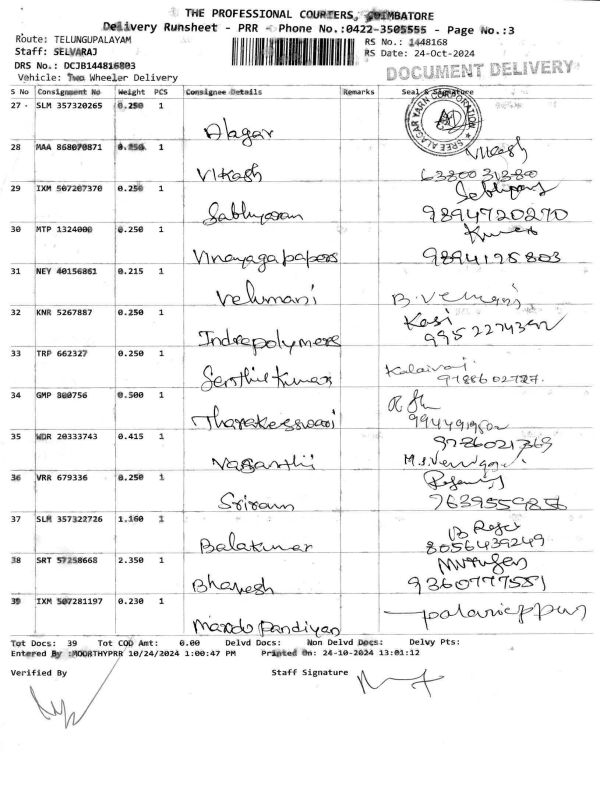 THE PROFESSIONAL COURIERS, COIMBATORE
Delivery Runsheet - PRR - Phone No.:0422-3505555 - Page No.:3
Route: TELUNGUPALAYAM
RS No.: 1448168
Staff: SELVARAJ
RS Date: 24-Oct-2024
DRS No.: DCJB144816803
DOCUMENT DELIVERY
Vehicle: Two Wheeler Delivery
S No Consignment No Weight PCS Consignee Details Remarks Seal & Signature
27 SLM 357320265 0.250 1
Alagar
SREE ALAGAR YARN CORPORATION
28 MAA 868070871 1
Vikash
Vikash
6380031380
29 IXM 507207370 0.250 1
9894720270
30 MTP 1324000 0.250 1
Vinayaga papers
Kumar
9894175803
31 NEY 40156861 0.215 1
Velumani
B. Velumani
32 KNR 5267887 0.250 1
Indrapolymers
Kasi
33 TRP 662327 0.250 1
Senthil Kumar
Kalaivani
34 GMP 800756 0.500 1
Tharakeswari
35 WDR 20333743 0.415 1
Vasanthi
9786021369
36 VRR 679336 0.250 1
Sriram
7639559856
37 SLM 357322726 1.160 1
Balakumar
8056439249
38 SRT 57258668 2.350 1
Bhavesh
Murugan
9360777551
39 IXM 507281197 0.230 1
Mando Pandiyan
Palaniappan
Tot Docs: 39 Tot COD Amt: 0.00 Delvd Docs: Non Delvd Docs: Delvy Pts:
Entered By :MOORTHYPRR 10/24/2024 1:00:47 PM Printed On: 24-10-2024 13:01:12
Verified By
Staff Signature